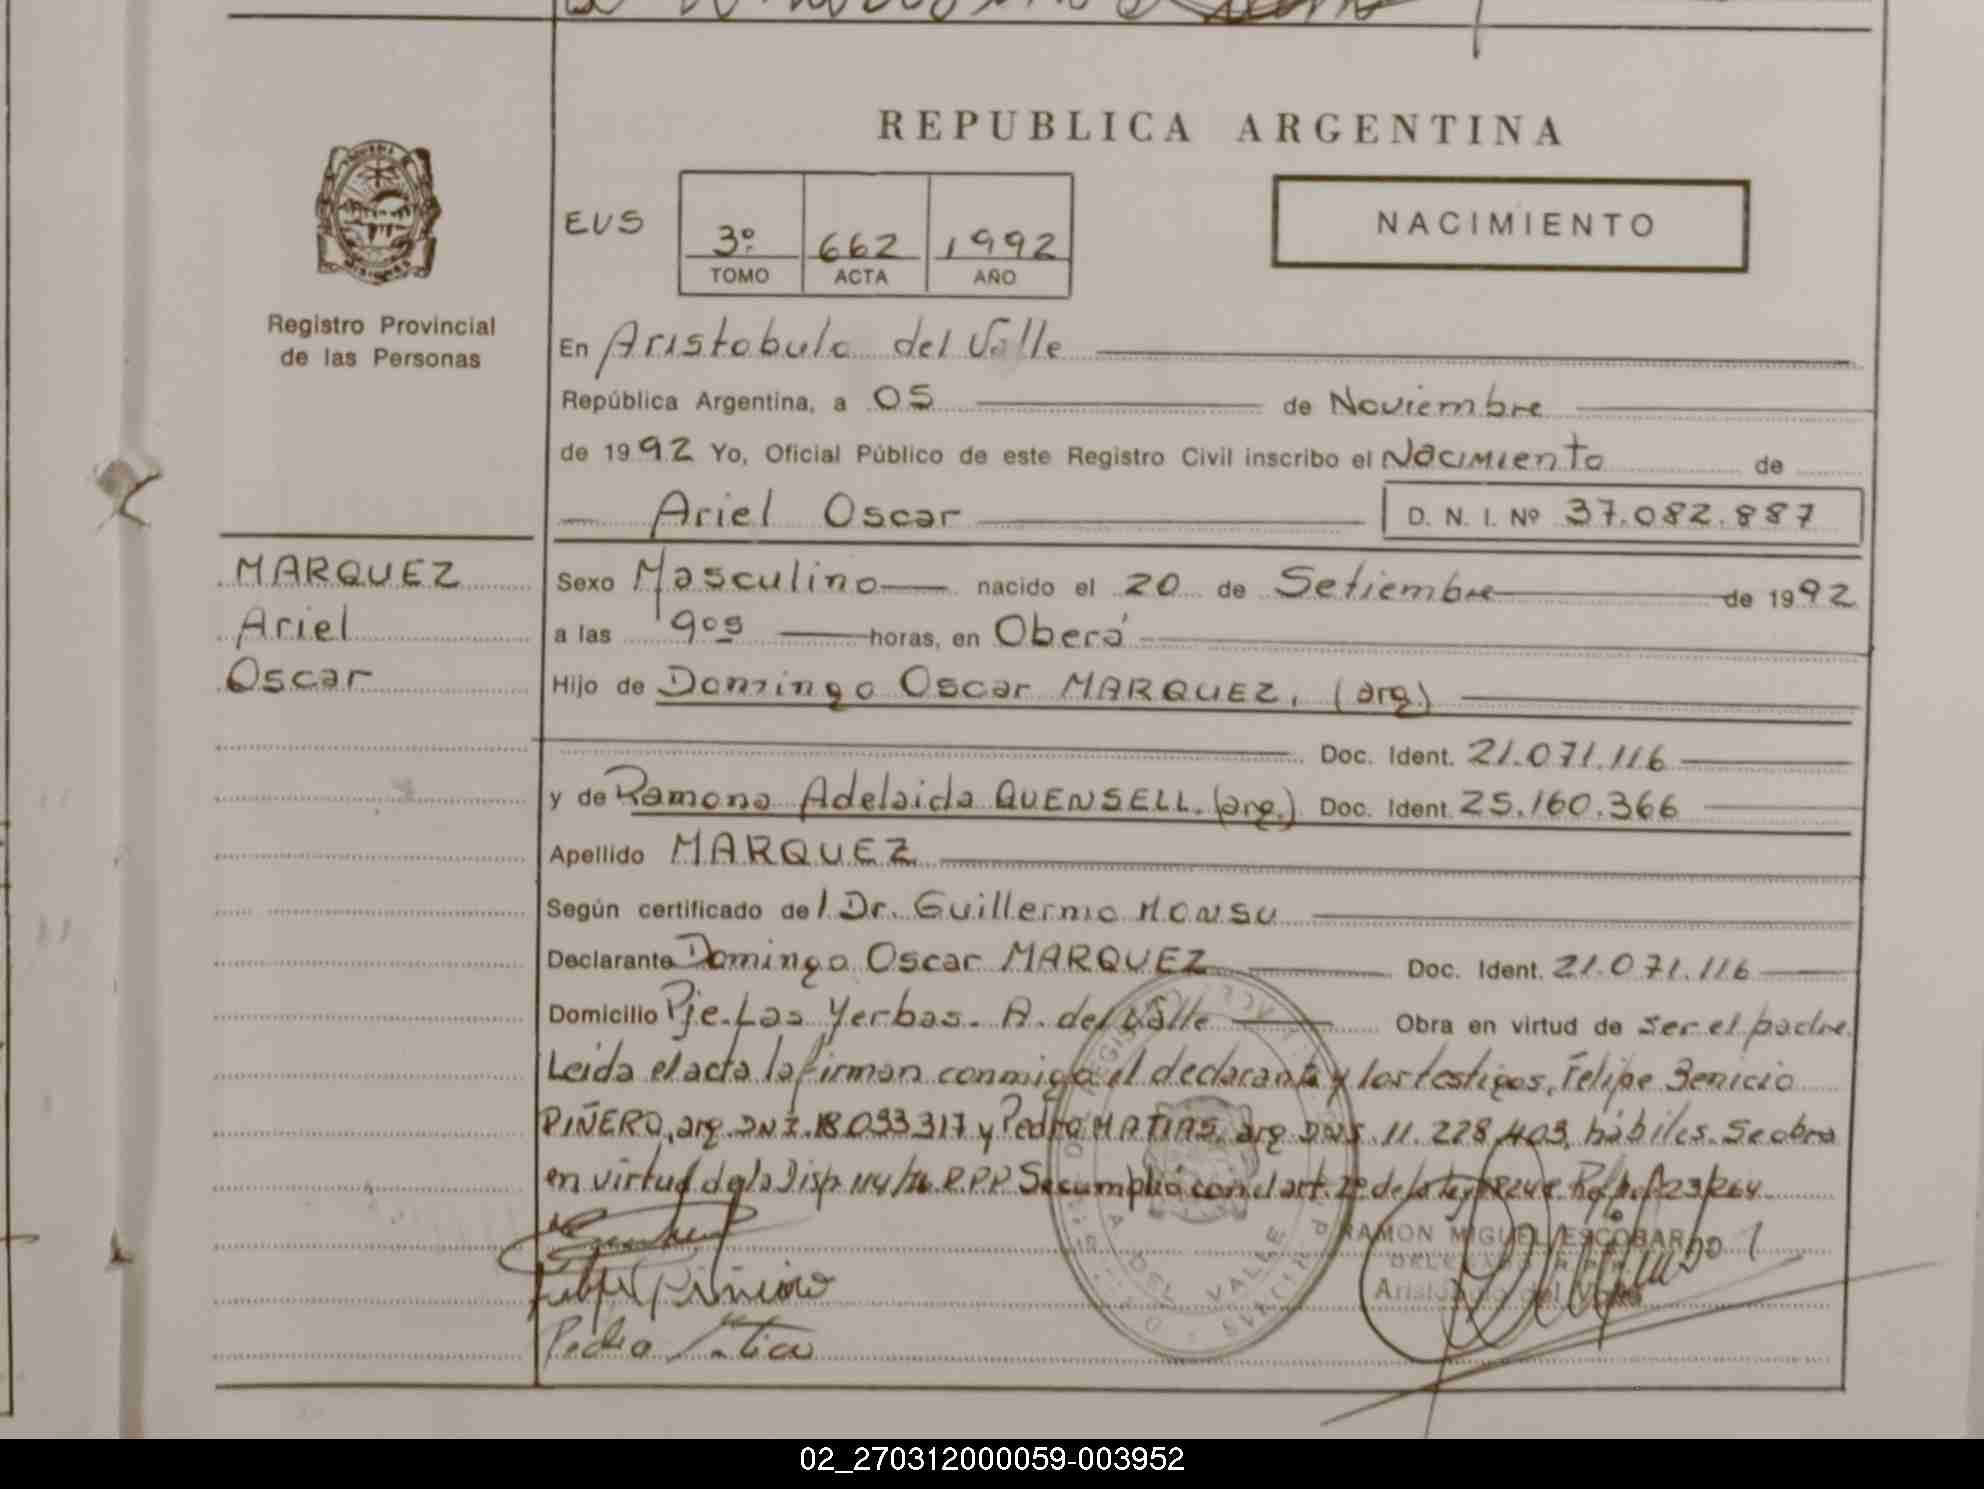 REPUBLICA ARGENTINA
NACIMIENTO
EUS
3º 662 1992
TOMO ACTA AÑO
Registro Provincial
de las Personas
En Aristobulo del Valle
República Argentina, a 05 de Noviembre
de 1992 Yo, Oficial Público de este Registro Civil inscribo el Nacimiento de
Ariel Oscar D. N. I. Nº 37.082.887
MARQUEZ
Ariel
Oscar
Sexo Masculino nacido el 20 de Setiembre de 1992
a las 9os horas, en Oberá
Hijo de Domingo Oscar MARQUEZ, (arg.)
Doc. Ident. 21.071.116
y de Ramona Adelaida QUENSELL. (arg.) Doc. Ident. 25.160.366
Apellido MARQUEZ
Según certificado del Dr. Guillermo
Declarante Domingo Oscar MARQUEZ Doc. Ident. 21.071.116
Domicilio Pje. Las Yerbas. A. del Valle Obra en virtud de ser el padre.
Leida el acta la firman conmigo el declarante y los testigos, Felipe Benicio
PIÑERO, arg. DNI. 18.033.317 y Pedro MATIAS, arg. DNI. 11.228.403, hábiles. Se obra
en virtud de la Disp. 114/ R.P.P. Se cumplió con el art. 2º de la ley
RAMON MIGUEL ESCOBAR
DELEGADO
Aristobulo del Valle
Pedro
02_270312000059-003952